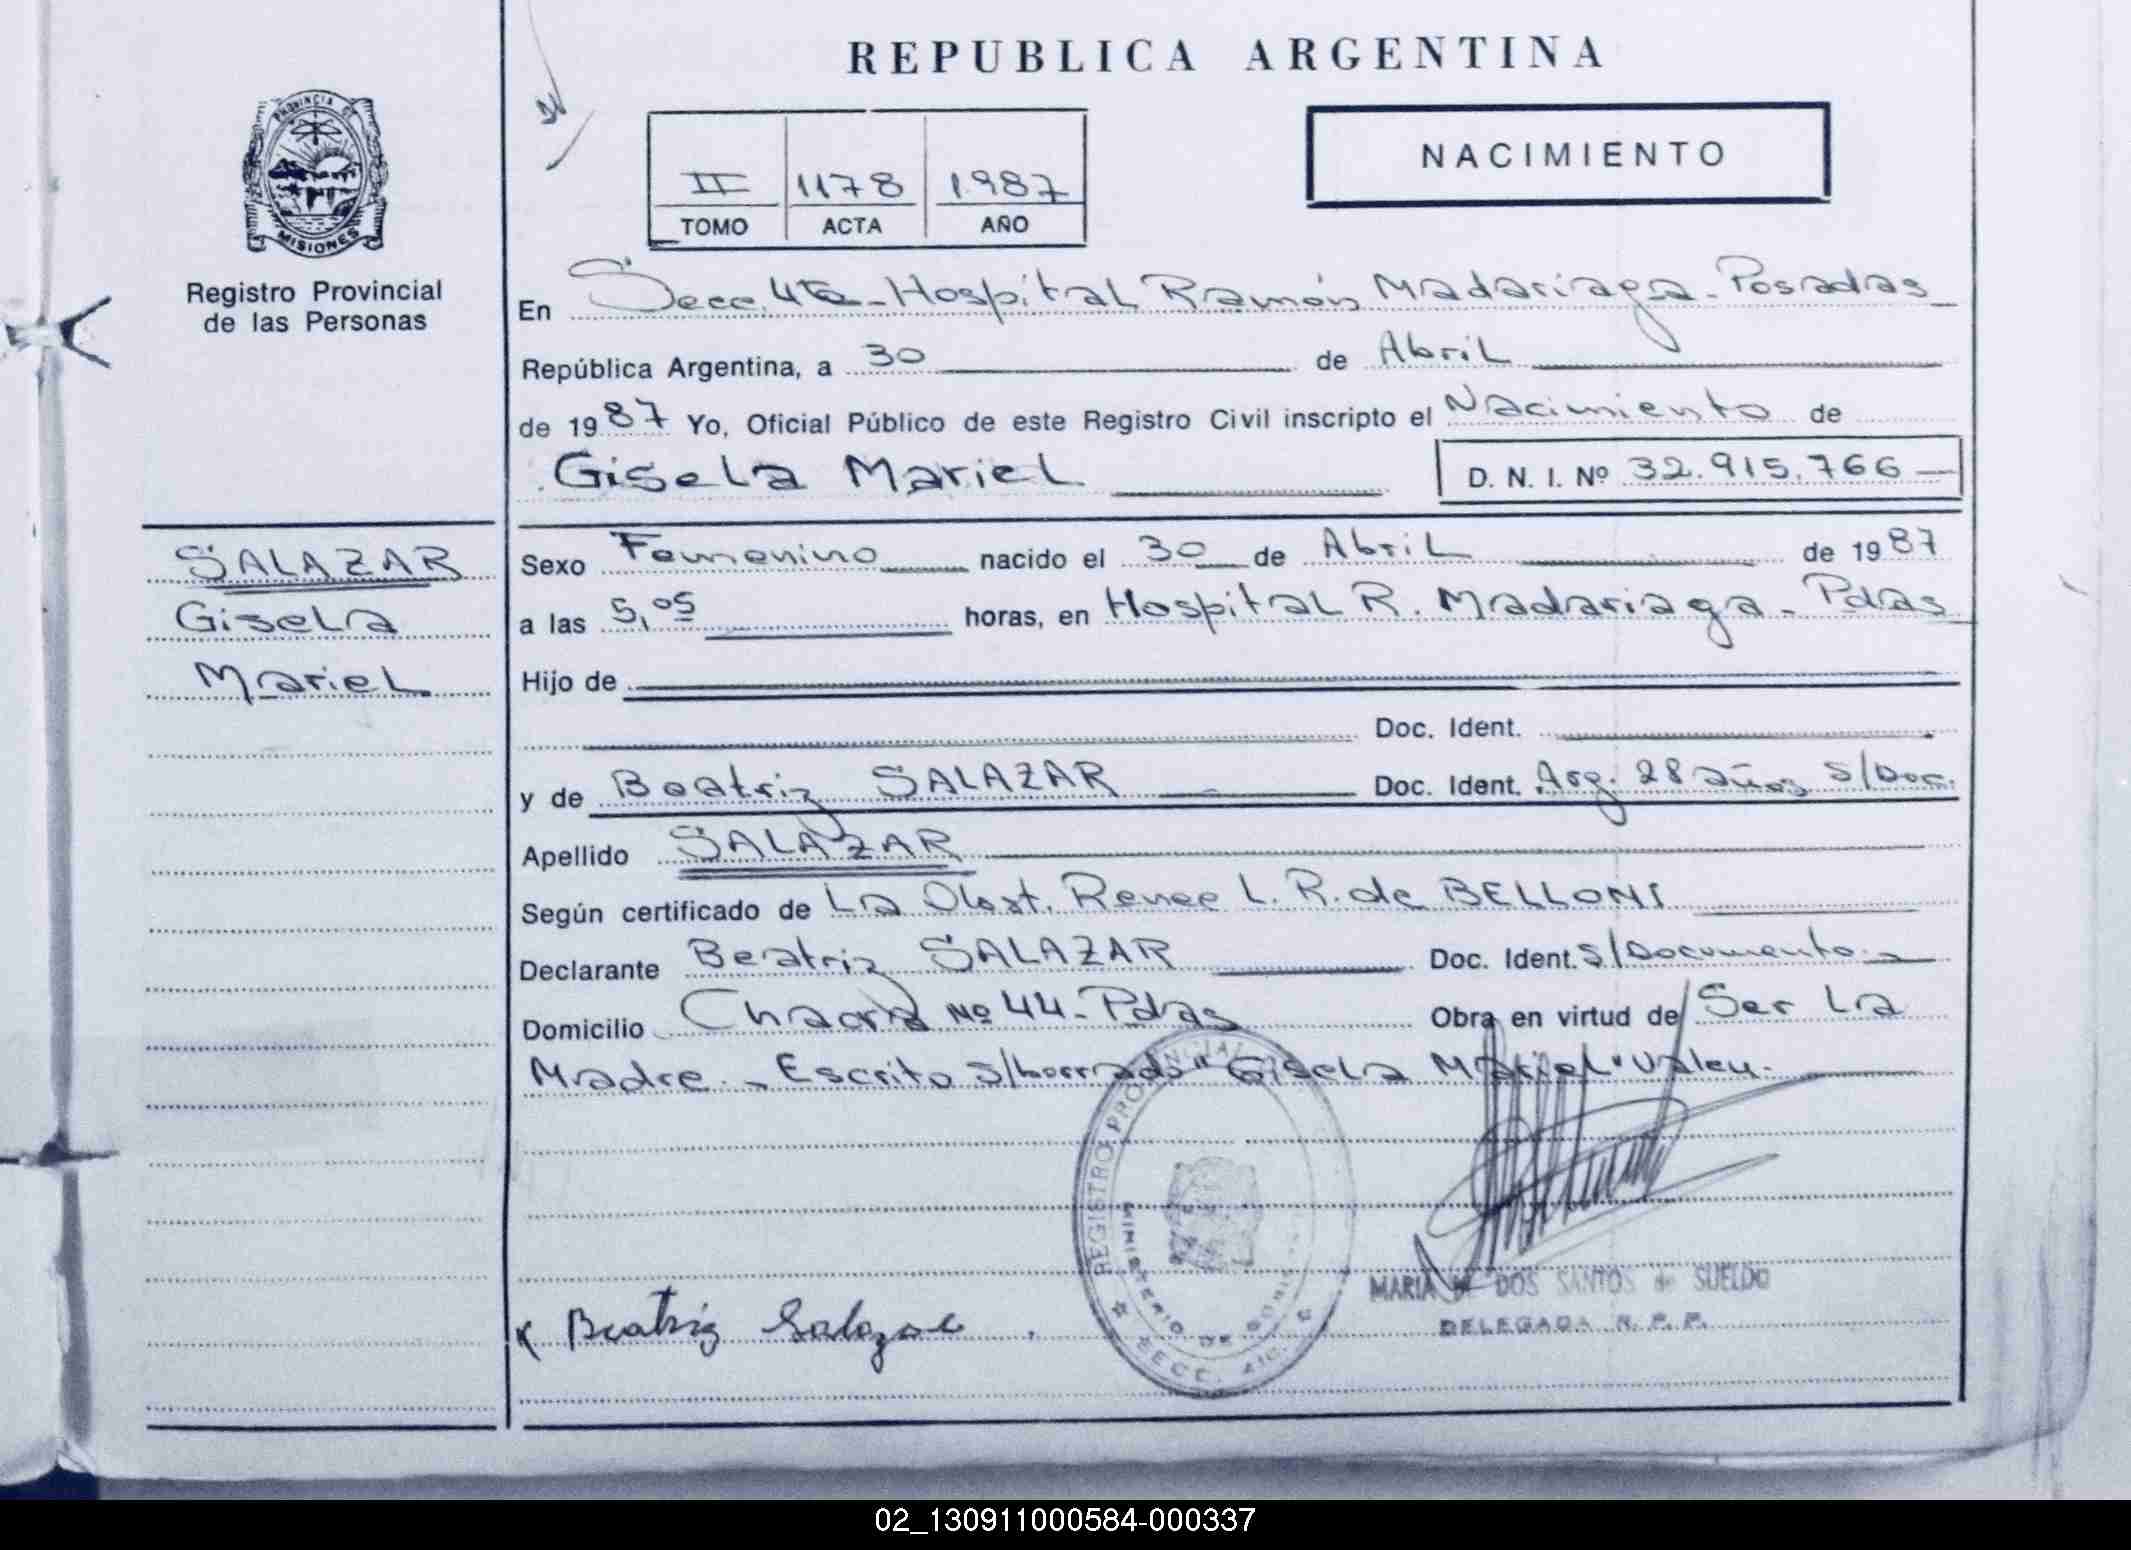 REPUBLICA ARGENTINA
PROVINCIA DE
MISIONES
Registro Provincial
de las Personas
NACIMIENTO
II 1178 1.987
TOMO ACTA AÑO
En Secc. 4ta - Hospital Ramón Madariaga - Posadas
República Argentina, a 30 de Abril
de 1987 Yo, Oficial Público de este Registro Civil inscripto el Nacimiento de
Gisela Mariel D. N. I. Nº 32.915.766
SALAZAR
Gisela
Mariel
Sexo Femenino nacido el 30 de Abril de 1987
a las 5,05 horas, en Hospital R. Madariaga - Pdas
Hijo de
Doc. Ident.
y de Beatriz SALAZAR Doc. Ident. Arg. 28 años s/Doc.
Apellido SALAZAR
Según certificado de La Obst. Renee L. R. de BELLONI
Declarante Beatriz SALAZAR Doc. Ident. s/Documento
Domicilio Chacra Nº 44 - Pdas Obra en virtud de Ser La
Madre - Escrito s/borrado "Gisela Mariel" Valen.
REGISTRO PROVINCIAL
MINISTERIO DE
MARIA DOS SANTOS de SUELDO
DELEGADA R. P. P.
x Beatriz Salazar
02_130911000584-000337